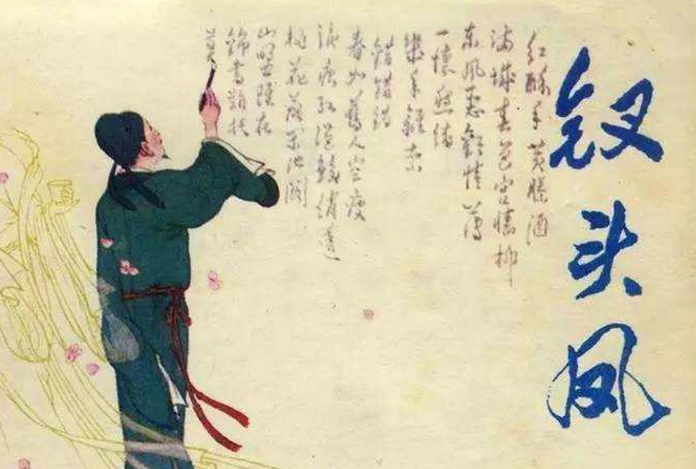 钗头凤
红酥手黄縢酒
满城春色宫墙柳
东风恶欢情薄
一怀愁绪
几年离索
错错错
春如舊人空瘦
泪痕红浥鲛绡透
桃花落闲池阁
山盟虽在
锦书难托
莫